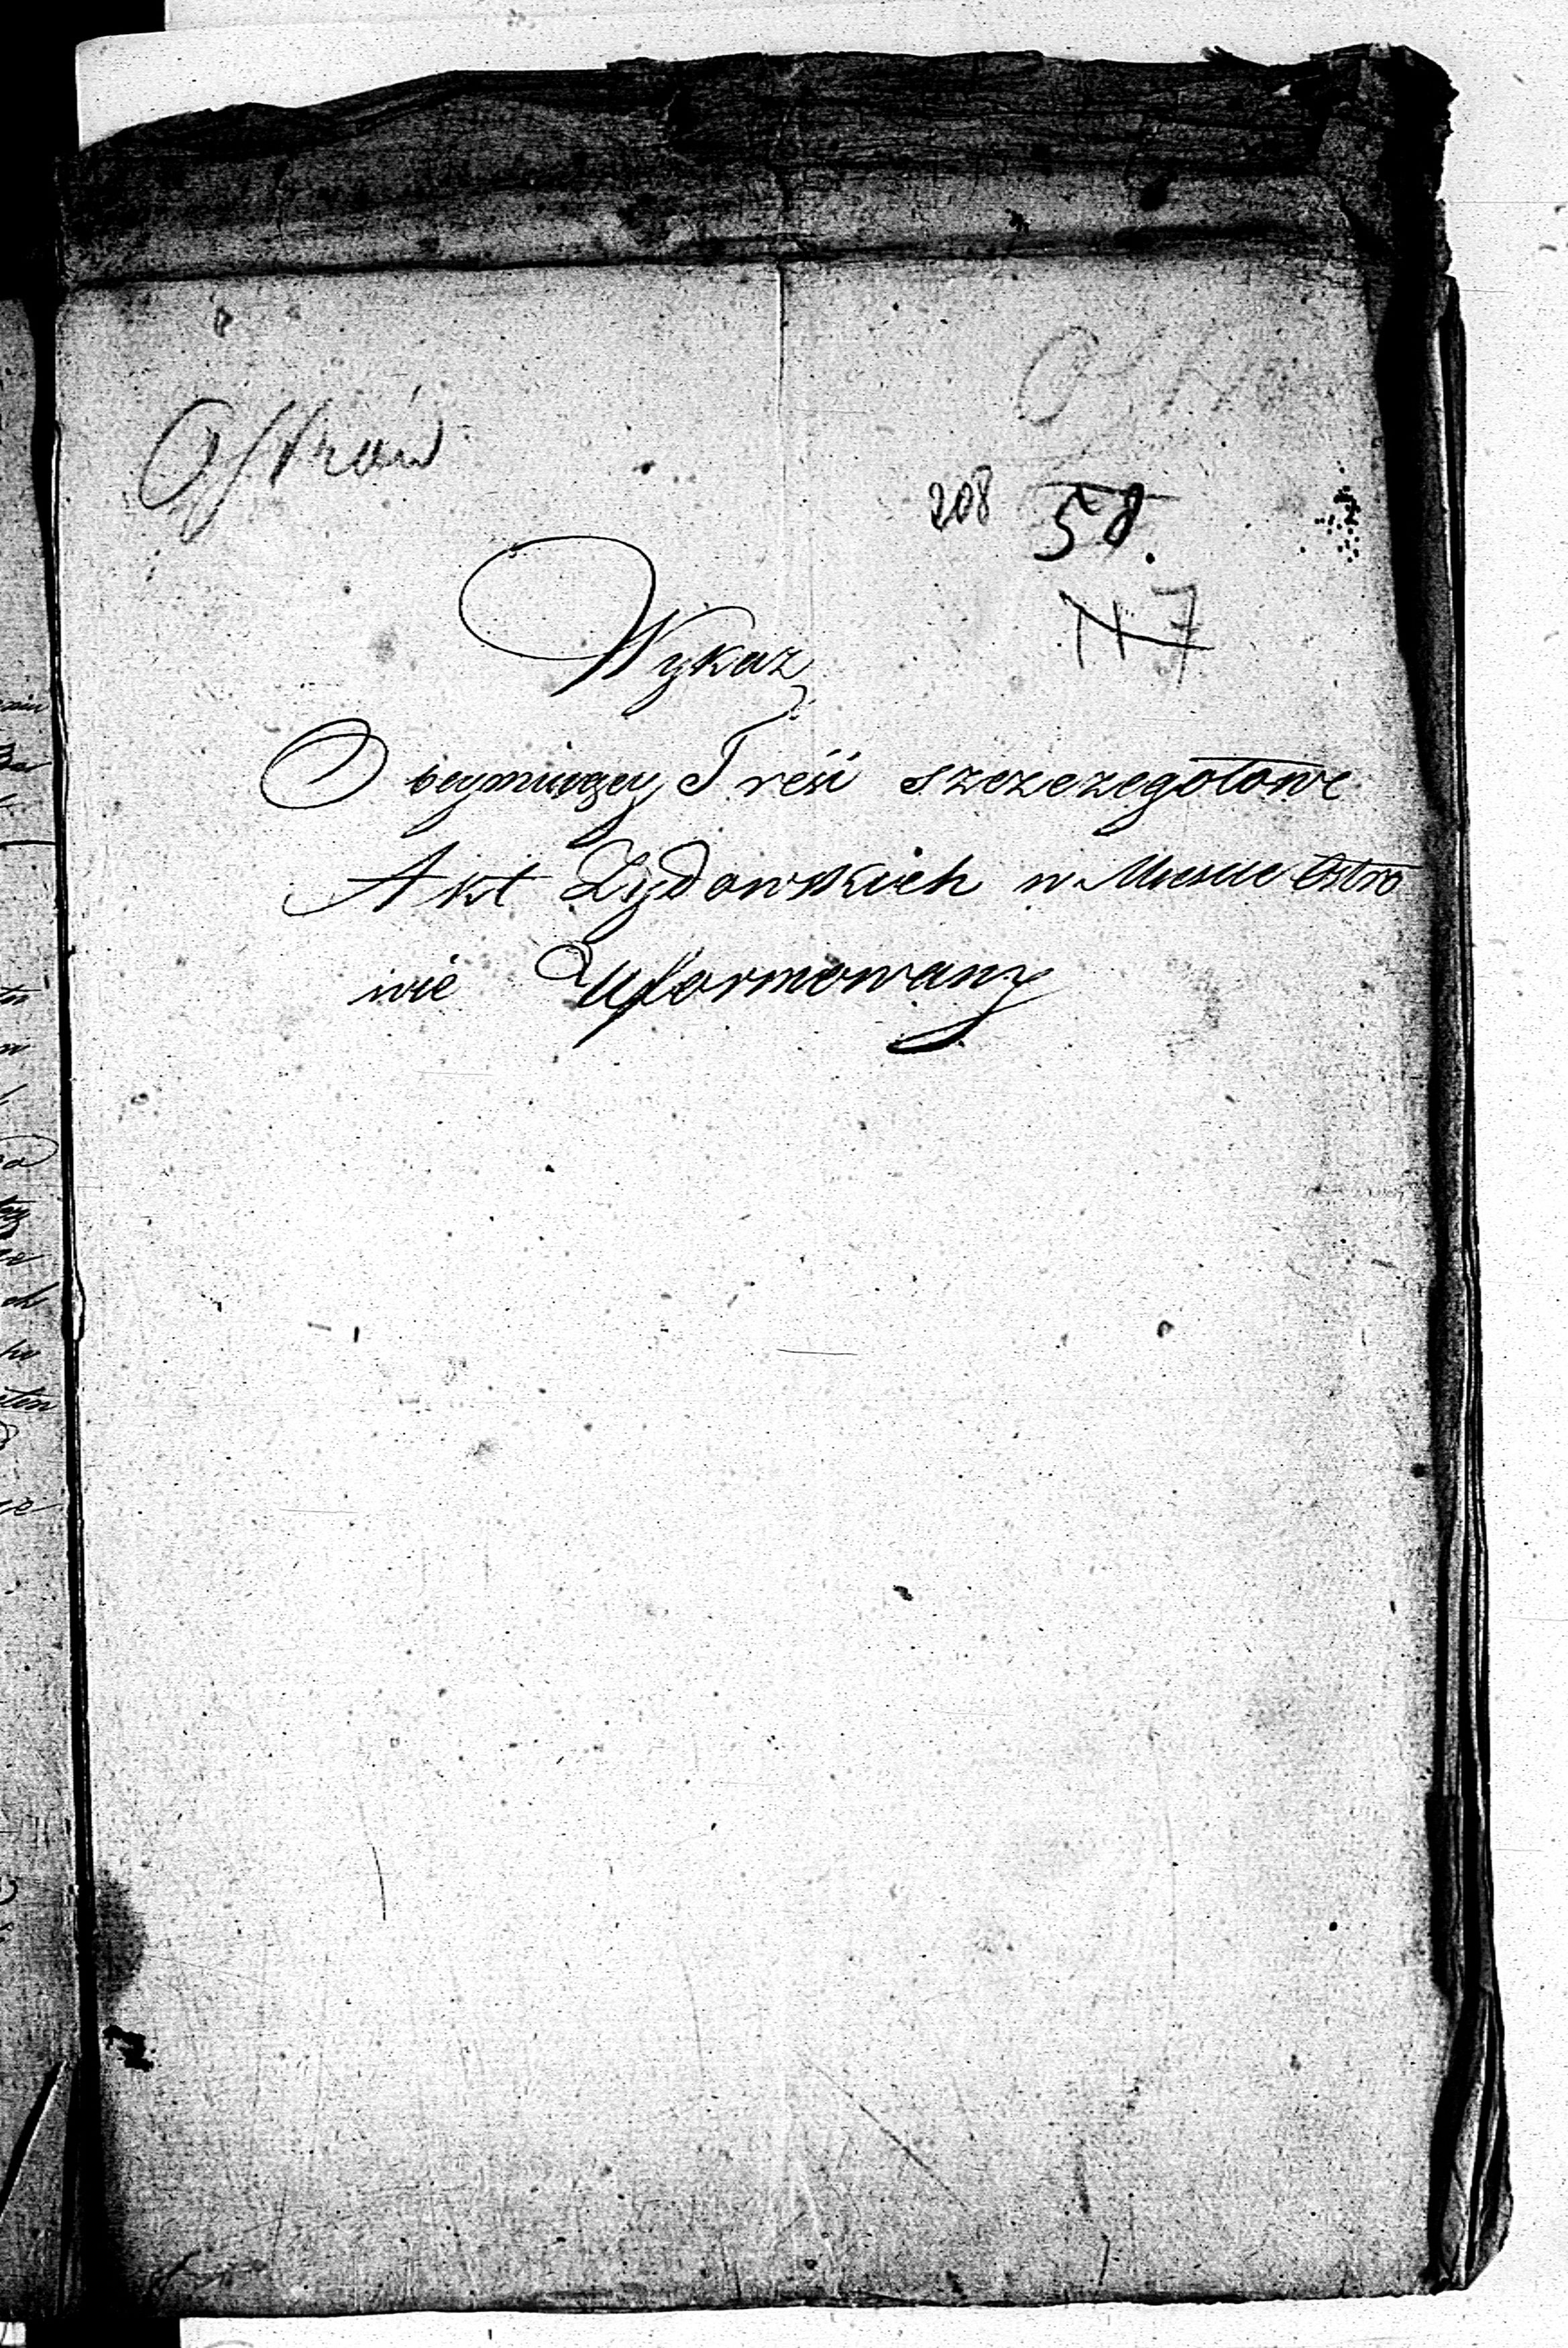 Ostrów
208 58.
N 7
Wykaz
Obeymuiący Treść szczezegołowe
Akt Zydowskich w Miescie Ostro
wie Uformowany